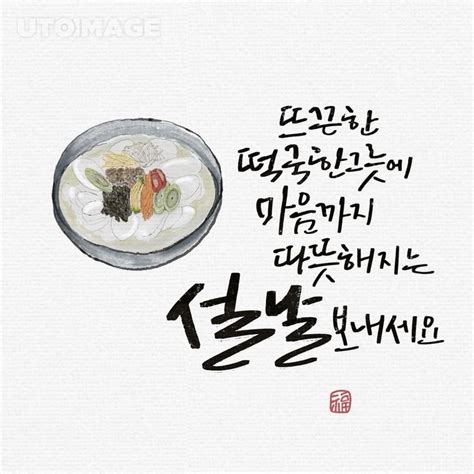 UTOIMAGE
뜨끈한
떡국한그릇에
마음까지
따뜻해지는
설날 보내세요
福